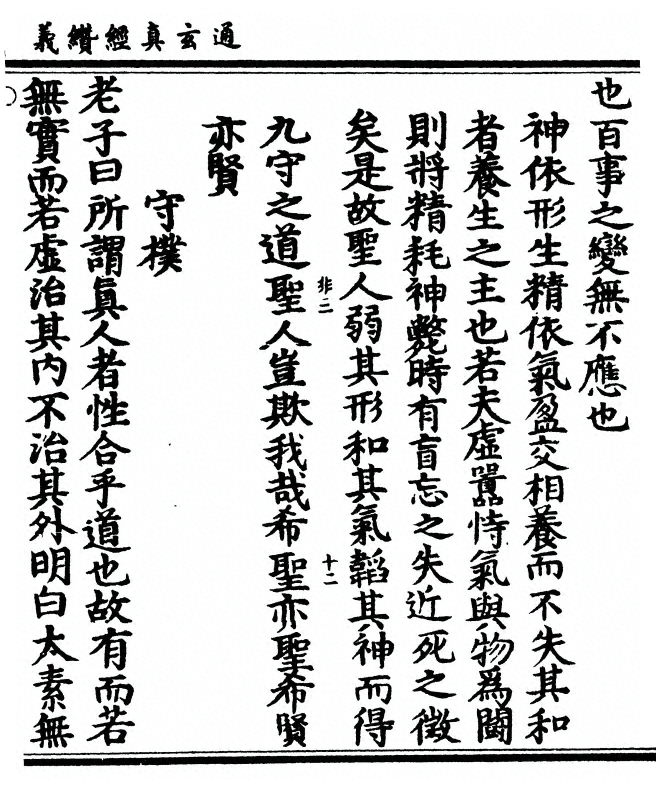 通玄真經纘義
也百事之變無不應也
神依形生精依氣盈交相養而不失其和
者養生之主也若夫虛囂恃氣與物爲鬬
則將精耗神斃時有盲忘之失近死之徵
矣是故聖人弱其形和其氣韜其神而得
非二
十二
九守之道聖人豈欺我哉希聖亦聖希賢
亦賢
守樸
老子曰所謂真人者性合乎道也故有而若
無實而若虛治其内不治其外明白太素無